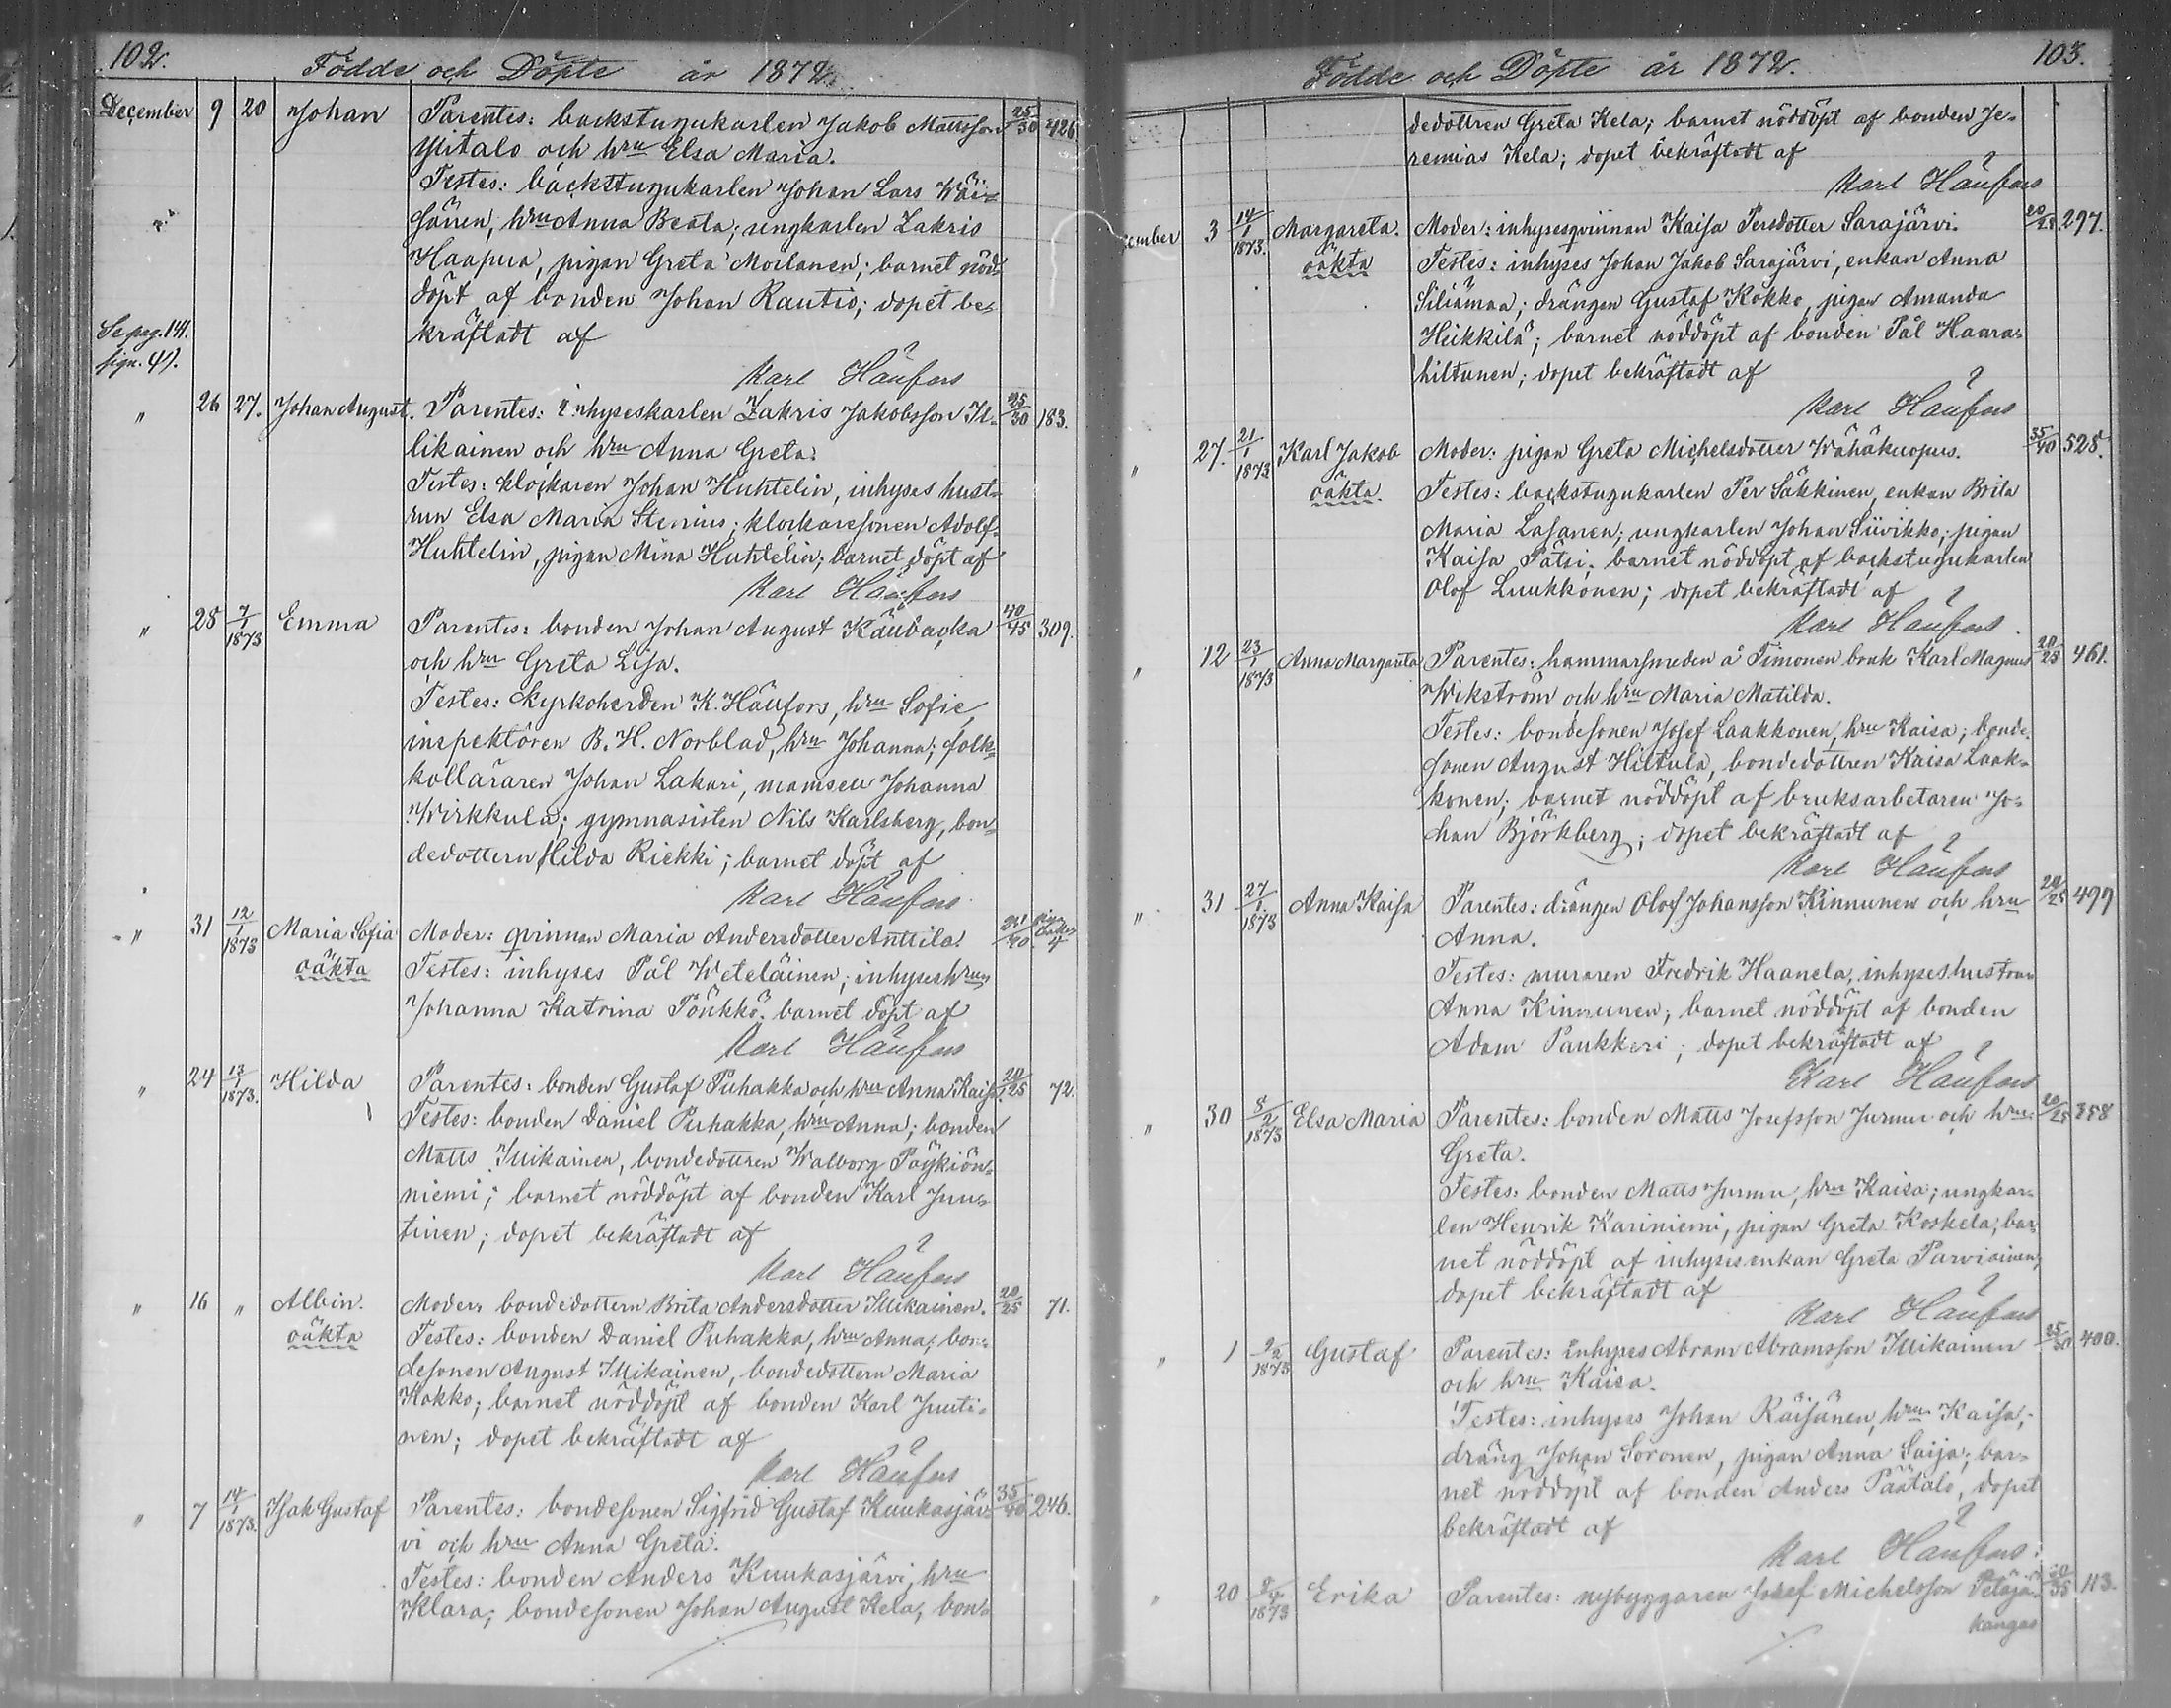 102.
Födde och Döpte år 1872.
December 9 20 Johan Parentes: backstugukarlen Jakob Mattsson 25/30 426
Ylitalo och hru Elsa Maria.
Testes: backstugukarlen Johan Lars Wäi-
sänen, hru Anna Beata; ungkarlen Zakris
Haapua, pigan Greta Moilanen; barnet nöd-
döpt af bonden Johan Rautio; dopet be-
Se pag. 141. kräftadt af
sign. 4).
Karl Häufors
" 26 27. Johan August. Parentes: inhyseskarlen Zakris Jakobsson Il- 25/30 183.
likainen och hru Anna Greta.
Testes: klockaren Johan Huhtelin, inhyses hust-
run Elsa Maria Stenius; klockaresonen Adolf
Huhtelin, pigan Mina Huhtelin; barnet döpt af
Karl Häufors
" 28 7/1 1873 Emma Parentes: bonden Johan August Käubacka 40/45 309.
och hru Greta Lisa.
Testes: Kyrkoherden K. Häufors, hru Sofie,
inspektören B. H. Norblad, hru Johanna; folk-
kolläraren Johan Lakari, mamsell Johanna
Wirkkula; gymnasisten Nils Karlsberg, bon-
dedottern Hilda Riekki; barnet döpt af
Karl Häufors
" 31 12/1 1873 Maria Sofia Moder: qvinnan Maria Andersdotter Anttila.
oäkta Testes: inhyses Pål Weteläinen; inhyseshrun
Johanna Katrina Pönkkö; barnet döpt af
Karl Häufors
" 24 13/1 1873. Hilda Parentes: bonden Gustaf Puhakka och hru Anna Kaisa. 20/25 72.
Testes: bonden Daniel Puhakka, hru Anna; bonden
Matts Illikainen, bondedottren Walborg Pöykiön-
niemi; barnet nöddöpt af bonden Karl Juu-
tinen; dopet bekräftadt af
Karl Häufors
" 16 " Albin. Moder: bondedottern Brita Andersdotter Illikainen. 20/25 71.
oäkta Testes: bonden Daniel Puhakka, hru Anna; bon-
desonen August Illikainen, bondedottern Maria
Kokko; barnet nöddöpt af bonden Karl Juuti-
nen; dopet bekräftadt af
Karl Häufors
" 7 14/1 1873. Isak Gustaf Parentes: bondesonen Sigfrid Gustaf Kuukasjär- 35/40 246.
vi och hru Anna Greta.
Testes: bonden Anders Kuukasjärvi, hru
Klara; bondesonen Johan August Kela, bon-
103.
Födde och Döpte år 1872.
dedottren Greta Kela; barnet nöddöpt af bonden Je-
remias Kela; dopet bekräftadt af
Karl Häufors
cember 3 14/1 1873. Margareta. Moder: inhysesqvinnan Kaisa Persdotter Sarajärvi. 20/25 297.
oäkta Testes: inhyses Johan Jakob Sarajärvi, enkan Anna
Siliämaa; drängen Gustaf Kokko, pigan Amanda
Heikkilä; barnet nöddöpt af bonden Pål Haara-
hiltunen; dopet bekräftadt af
Karl Häufors
" 27. 21/1 1873 Karl Jakob Moder: pigan Greta Michelsdotter Wähäkuopus. 35/40 528.
oäkta. Testes: backstugukarlen Per Säkkinen, enkan Brita
Maria Lasanen; ungkarlen Johan Siivikko; pigan
Kaisa Pätsi; barnet nöddöpt af backstugukarlen
Olof Luukkonen; dopet bekräftadt af
Karl Häufors
" 12 23/1 1873 Anna Margareta Parentes: hammarsmeden å Timonen bruk Karl Magnus 20/25 461.
Wikström och hru Maria Matilda.
Testes: bondesonen Josef Laakkonen, hru Kaisa; bonde-
sonen August Hiltula, bondedottren Kaisa Laak-
konen; barnet nöddöpt af bruksarbetaren Jo-
han Björkberg; dopet bekräftadt af
Karl Häufors
" 31 27/1 1873 Anna Kaisa Parentes: drängen Olof Johansson Kinnunen och hru 20/25 499
Anna.
Testes: muraren Fredrik Haanela, inhyseshustrun
Anna Kinnunen; barnet nöddöpt af bonden
Adam Paukkeri; dopet bekräftadt af
Karl Häufors
" 30 8/2 1873 Elsa Maria Parentes: bonden Matts Josefsson Jurmu och hru 20/25 358
Greta.
Testes: bonden Matts Jurmu, hru Kaisa; ungkar-
len Henrik Kariniemi, pigan Greta Koskela; bar-
net nöddöpt af inhysesenkan Greta Parviainen;
dopet bekräftadt af
Karl Häufors
" 1 9/2 1873 Gustaf Parentes: inhyses Abram Abramsson Illikainen 25/30 400.
och hru Kaisa.
Testes: inhyses Johan Räisänen, hru Kaisa;
dräng Johan Soronen, pigan Anna Saija; bar-
net nöddöpt af bonden Anders Päätalo, dopet
bekräftadt af
Karl Häufors
" 20 1873 Erika Parentes: nybyggaren Josef Michelsson Petäjä- 30/35 113.
kangas